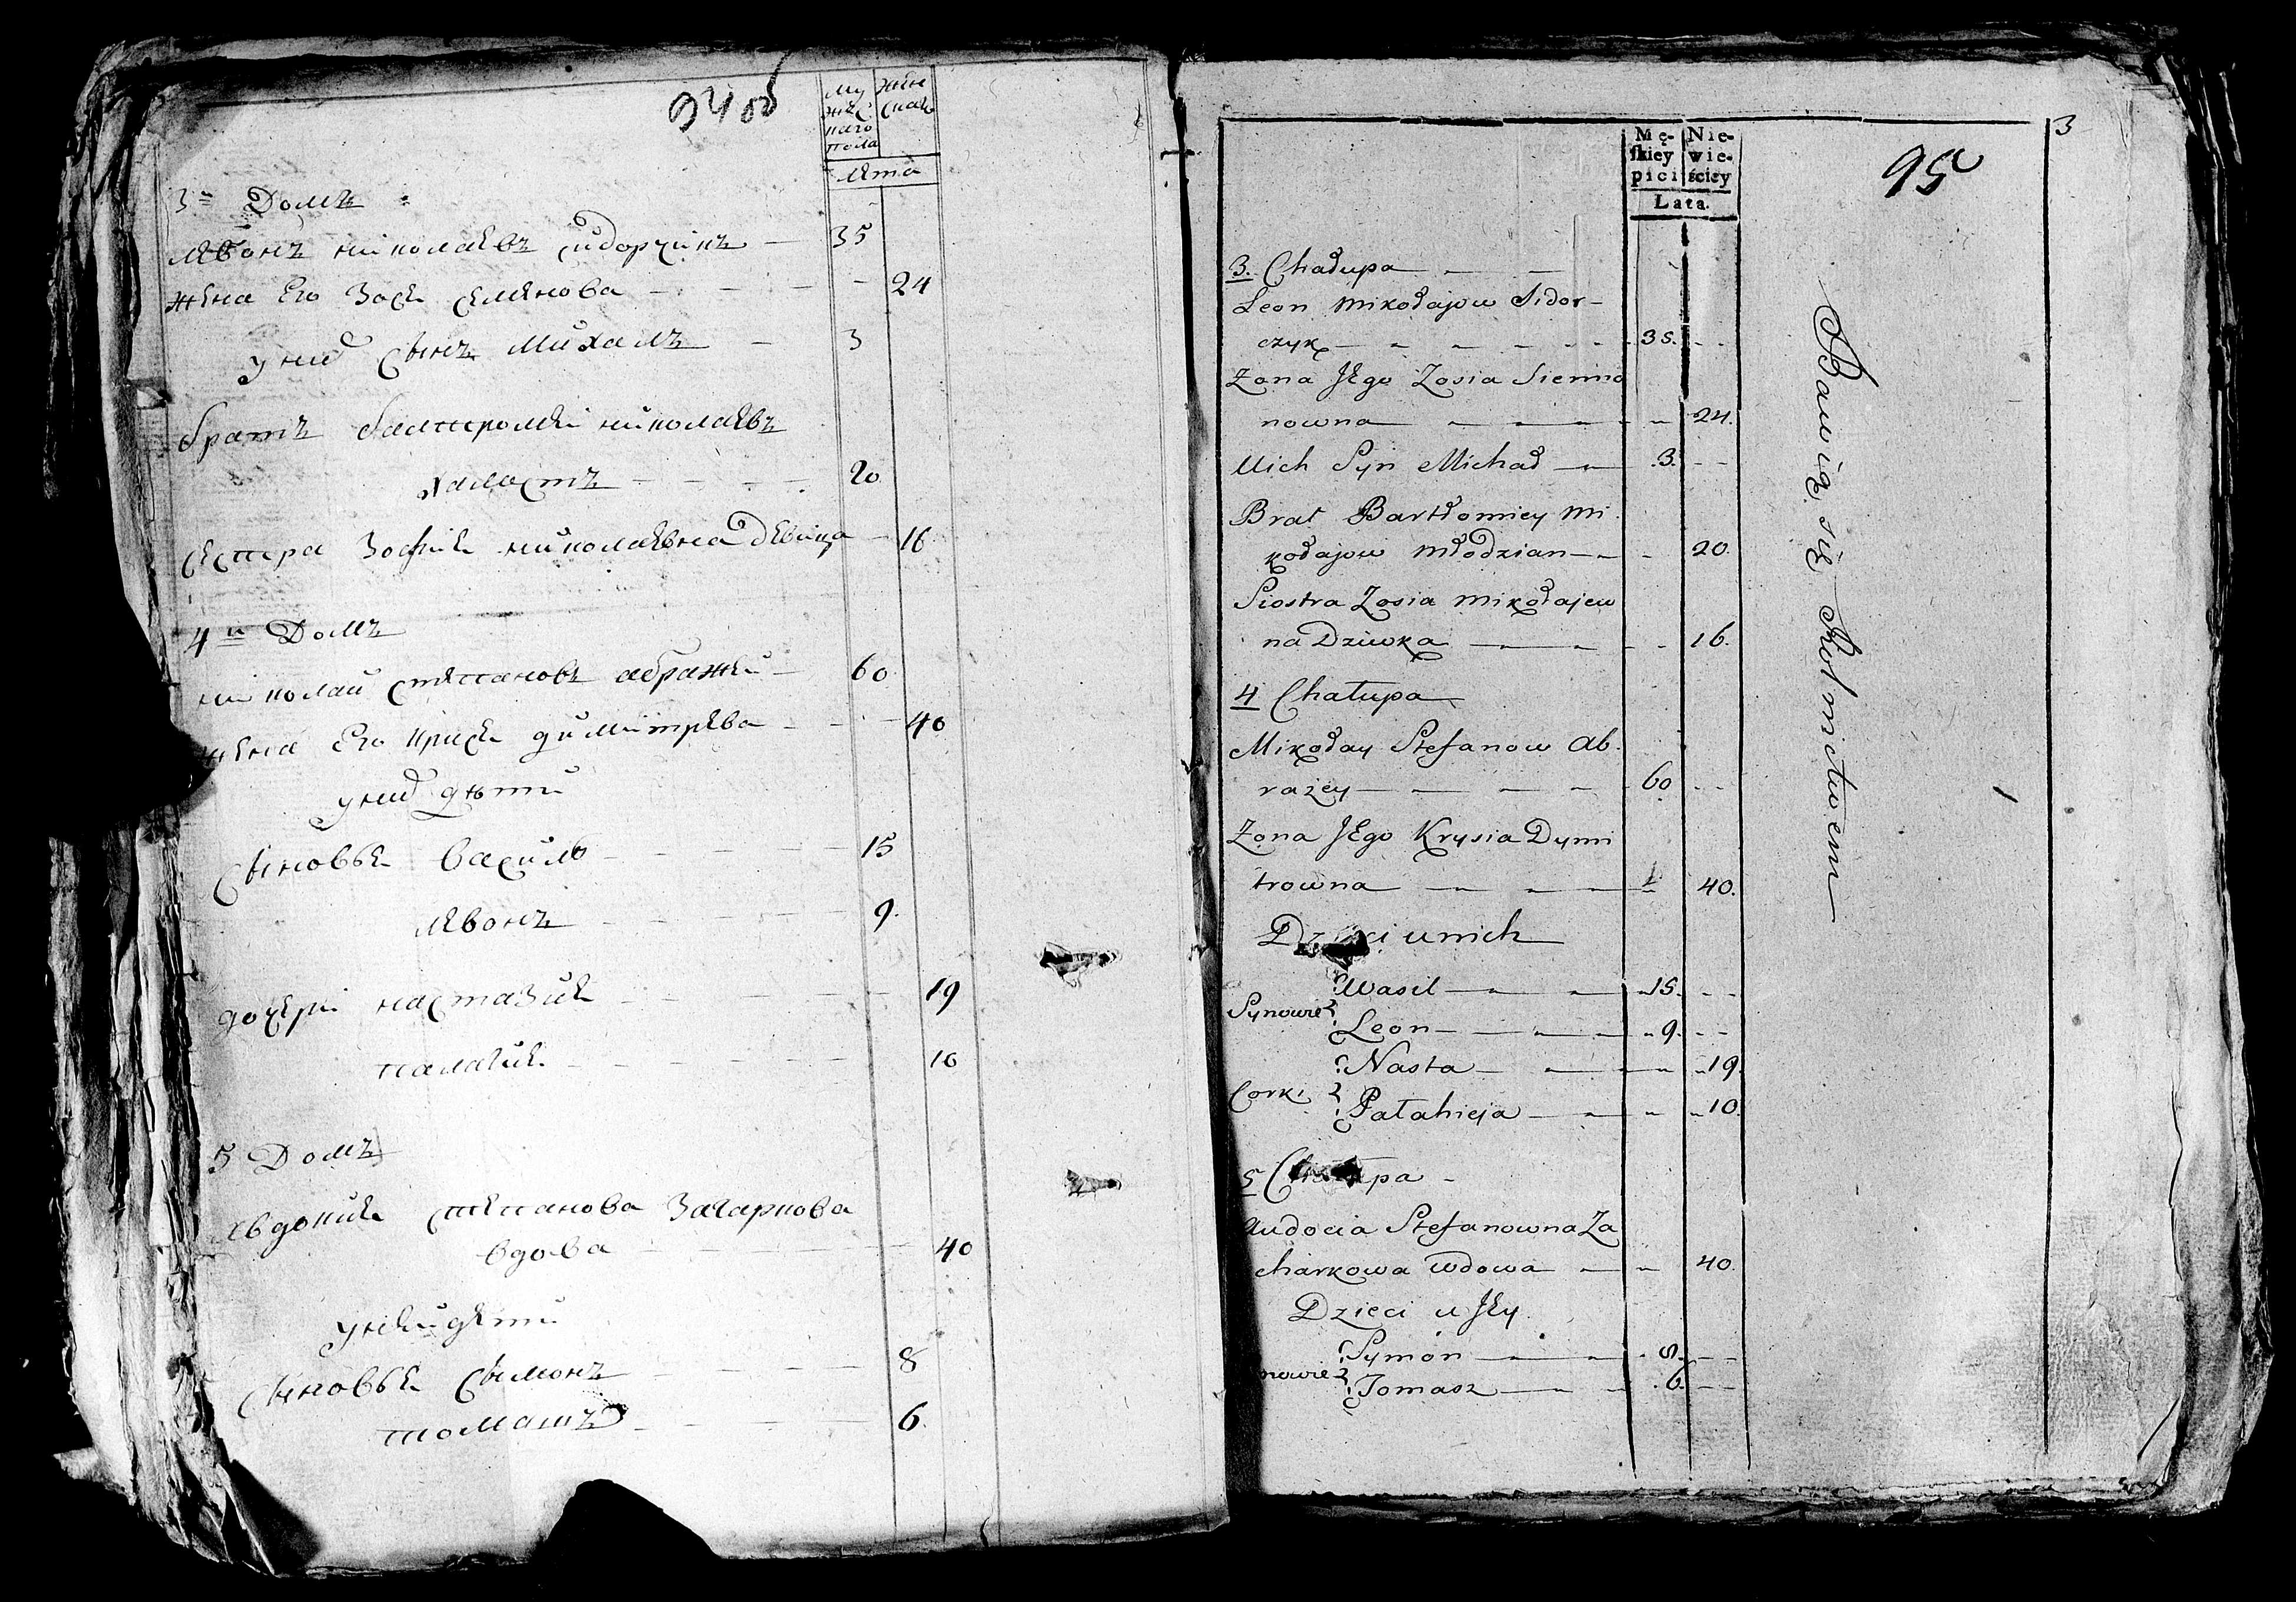 94 об
Му жеска
жес
каго
пола
лета
3й Домъ
Левонъ николаевъ сидорчикъ 35
жена Его Зося семенова 24
у них сынъ Михалъ 3
братъ балтромей николаевъ
халостъ 20
сестра Зофия николаевна девица 16
4й Домъ
николай степановъ абражей 60
жена Его крися димитрева 40
у них дети
сыновье василь 15
левонъ 9.
дочери настазия 19
палагия 10
5 Домъ
евдокия степанова Захаркова
вдова 40
у ней дети
сыновье сымонъ 8
томашъ 6.
3
Mę- Nie-
skiey wie-
pici ściey
Lata.
95
3. Chałupa
Leon Mikołajow Sidor-
czyk 35.
Żona JEgo Zosia Siemio
nowna 24.
Uich Syn Michał .3.
Brat Bartłomiey Mi
kołajow Młodzian 20.
Siostra Zosia Mikołajew
na Dziwka 16.
4 Chałupa
Mikołay Stefanow Ab.
razey 60
Żona JEgo Krysia Dymi
trowna 40.
Dzieci u nich
Wasil 15.
Synowie
Leon 9.
Nasta 19.
Corki
Pałahieja 10.
5 Chałupa
Audocia Stefanowna Za
charkowa wdowa 40.
Dzieci u Jey
Symón 8.
nowie
Tomasz 6.
Bawią się Rolnictwem